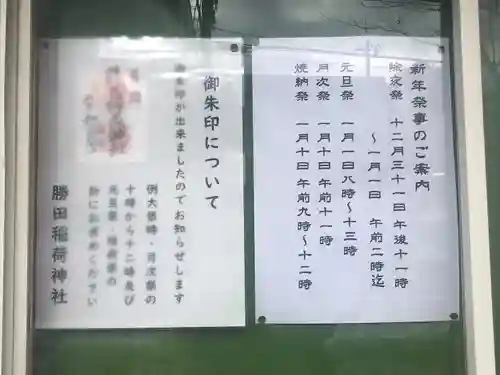 新年祭事のご案内
除夜祭 十二月三十一日 午後十一時
～一月一日 午前二時迄
元旦祭 一月一日八時～十三時
月次祭 一月十日 午前十一時
焼納祭 一月十日 午前九時～十二時
御朱印について
御朱印が出来ましたのでお知らせします
例大祭時・月次祭の
十時から十二時及び
元旦祭・
勝田稲荷神社